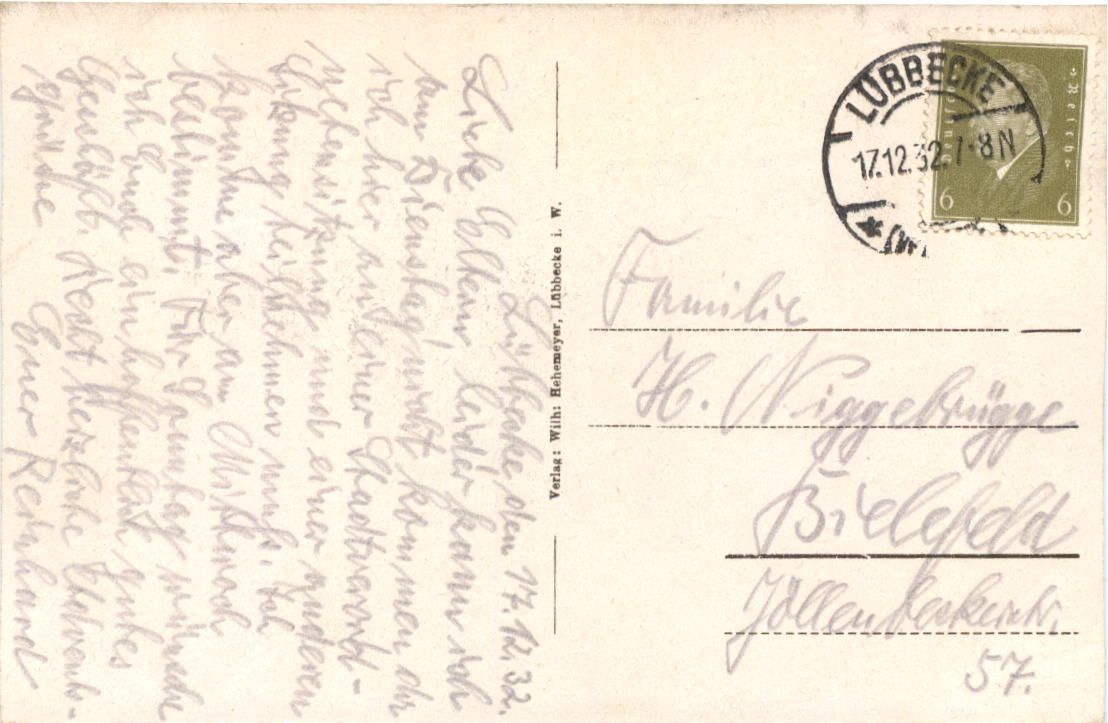 Lübbecke, den 17. 12. 32.
Liebe Eltern, leider kann ich
am Dienstag nicht kommen da
ich hier an einer Stadtverord-
netensitzung und einer anderen
Sitzung teilnehmen muß. Ich
komme aber am Mittwoch
bestimmt. Für Sonntag wünsche
ich Euch ein hoffentlich gutes
recht herzliche
grüße Euer Reinhard
Verlag: Wilh: Hehemeyer, Lübbecke i. W.
LÜBBECKE
17.12.32. 7-8N
Deutsches
6 6
Familie
H. Niggebrügge
Bielefeld
Jöllenbeckerstr.
57.